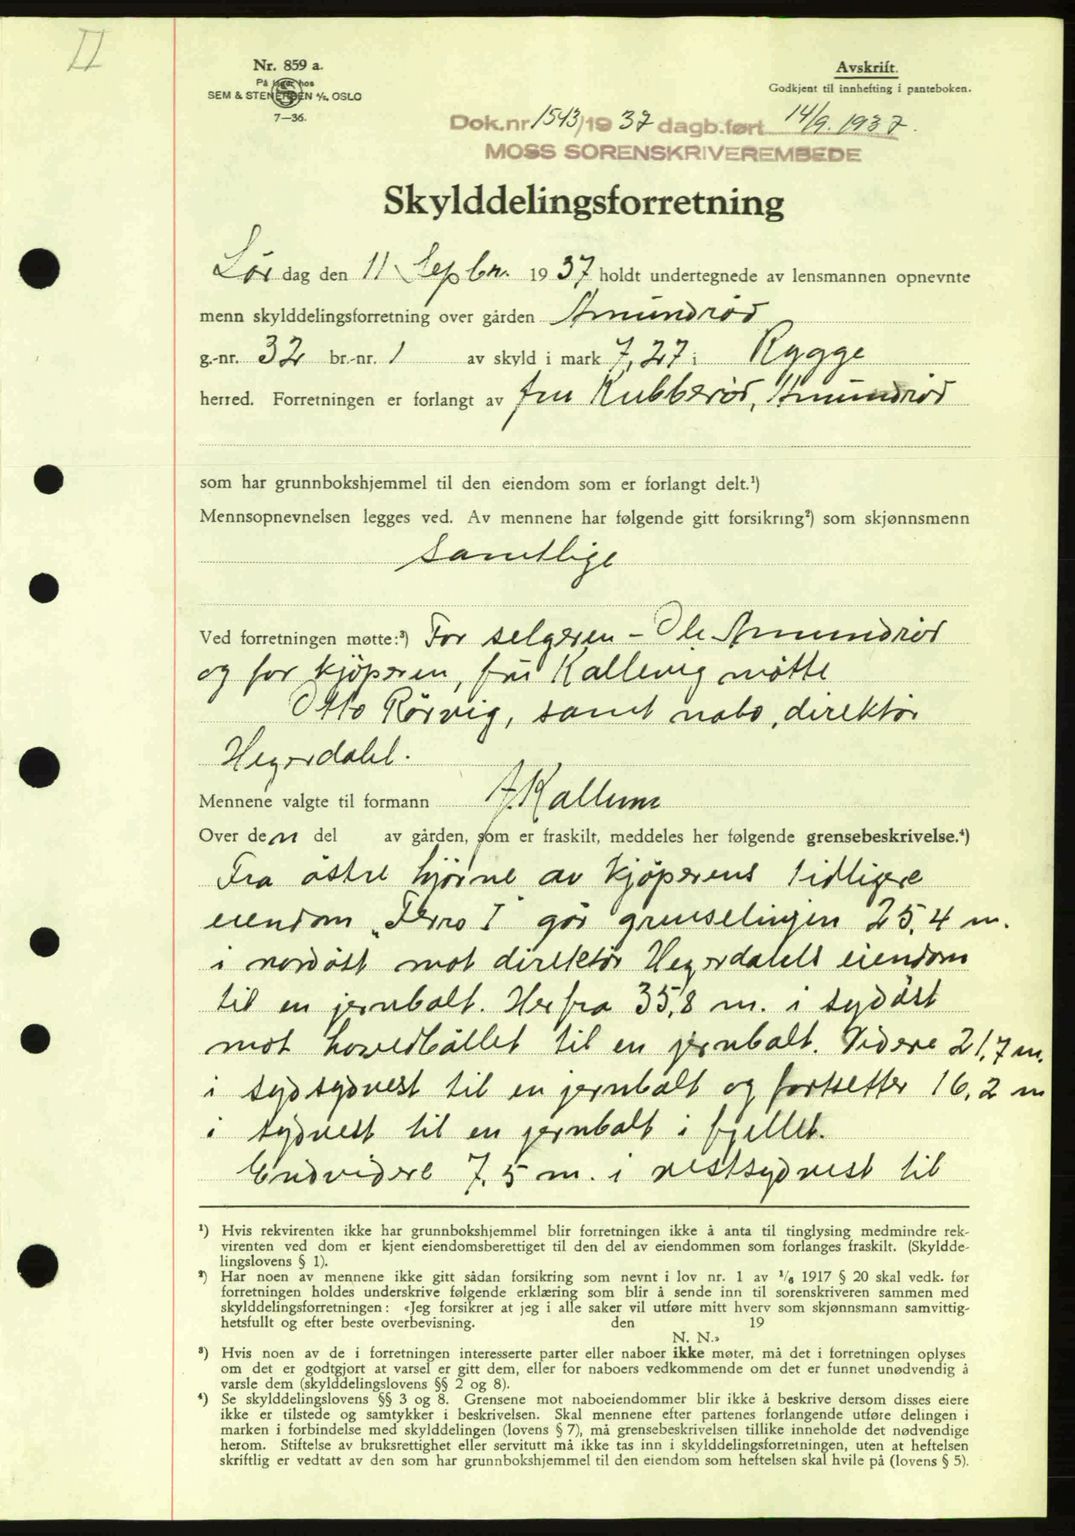 II
Nr. 859 a.
På lager hos
SEM & STENERSEN A/S, OSLO
7—36.
Avskrift.
Godkjent til innhefting i panteboken.
Dok.nr 1543/19 37 dagb.ført 14/9. 1937.
MOSS SORENSKRIVEREMBEDE
Skylddelingsforretning
Lør dag den 11 Septbr. 19 37 holdt undertegnede av lensmannen opnevnte
menn skylddelingsforretning over gården Amundrød
g.-nr. 32 br.-nr. 1 av skyld i mark 7,27 i Rygge
herred. Forretningen er forlangt av fru Kubberød, Amundrød
som har grunnbokshjemmel til den eiendom som er forlangt delt.¹)
Mennsopnevnelsen legges ved. Av mennene har følgende gitt forsikring²) som skjønnsmenn
Samtlige
Ved forretningen møtte:³) For selgeren – Ole Amundrød
og for kjöperen, fru Kallevig møtte
Otto Rörvig, samt nabo, direktør
Hegerdahl.
Mennene valgte til formann J. Kallum
Over den del av gården, som er fraskilt, meddeles her følgende grensebeskrivelse.⁴)
Fra östre hjörne av kjöperens tidligere
eiendom „Ferro I" går grenselinjen 25,4 m.
i nordöst mot direktör Hegerdahls eiendom
til en jernbolt. Herfra 35,8 m. i sydöst
mot hovedbölet til en jernbolt. Videre 21,7 m.
i sydsydvest til en jernbolt og fortsetter 16,2 m
i sydvest til en jernbolt i fjellet.
Endvidere 7,5 m. i vestsydvest til
¹) Hvis rekvirenten ikke har grunnbokshjemmel blir forretningen ikke å anta til tinglysing medmindre rek-
virenten ved dom er kjent eiendomsberettiget til den del av eiendommen som forlanges fraskilt. (Skyldde-
lingslovens § 1).
²) Har noen av mennene ikke gitt sådan forsikring som nevnt i lov nr. 1 av 1/6 1917 § 20 skal vedk. før
forretningen holdes underskrive følgende erklæring som blir å sende inn til sorenskriveren sammen med
skylddelingsforretningen: «Jeg forsikrer at jeg i alle saker vil utføre mitt hverv som skjønnsmann samvittig-
hetsfullt og efter beste overbevisning. den 19
N. N.»
³) Hvis noen av de i forretningen interesserte parter eller naboer ikke møter, må det i forretningen oplyses
om det er godtgjort at varsel er gitt dem, eller for naboers vedkommende om det er funnet unødvendig å
varsle dem (skylddelingslovens §§ 2 og 8).
⁴) Se skylddelingslovens §§ 3 og 8. Grensene mot naboeiendommer blir ikke å beskrive dersom disses eiere
ikke er tilstede og samtykker i beskrivelsen. Skal mennene efter partenes forlangende utføre delingen i
marken i forbindelse med skylddelingen (lovens § 7), må grensebeskrivelsen tillike inneholde det nødvendige
herom. Stiftelse av bruksrettighet eller servitutt må ikke tas inn i skylddelingsforretningen, uten at heftelsen
skriftlig er vedtatt av den som har grunnbokshjemmel til den eiendom som heftelsen skal hvile på (lovens § 5).